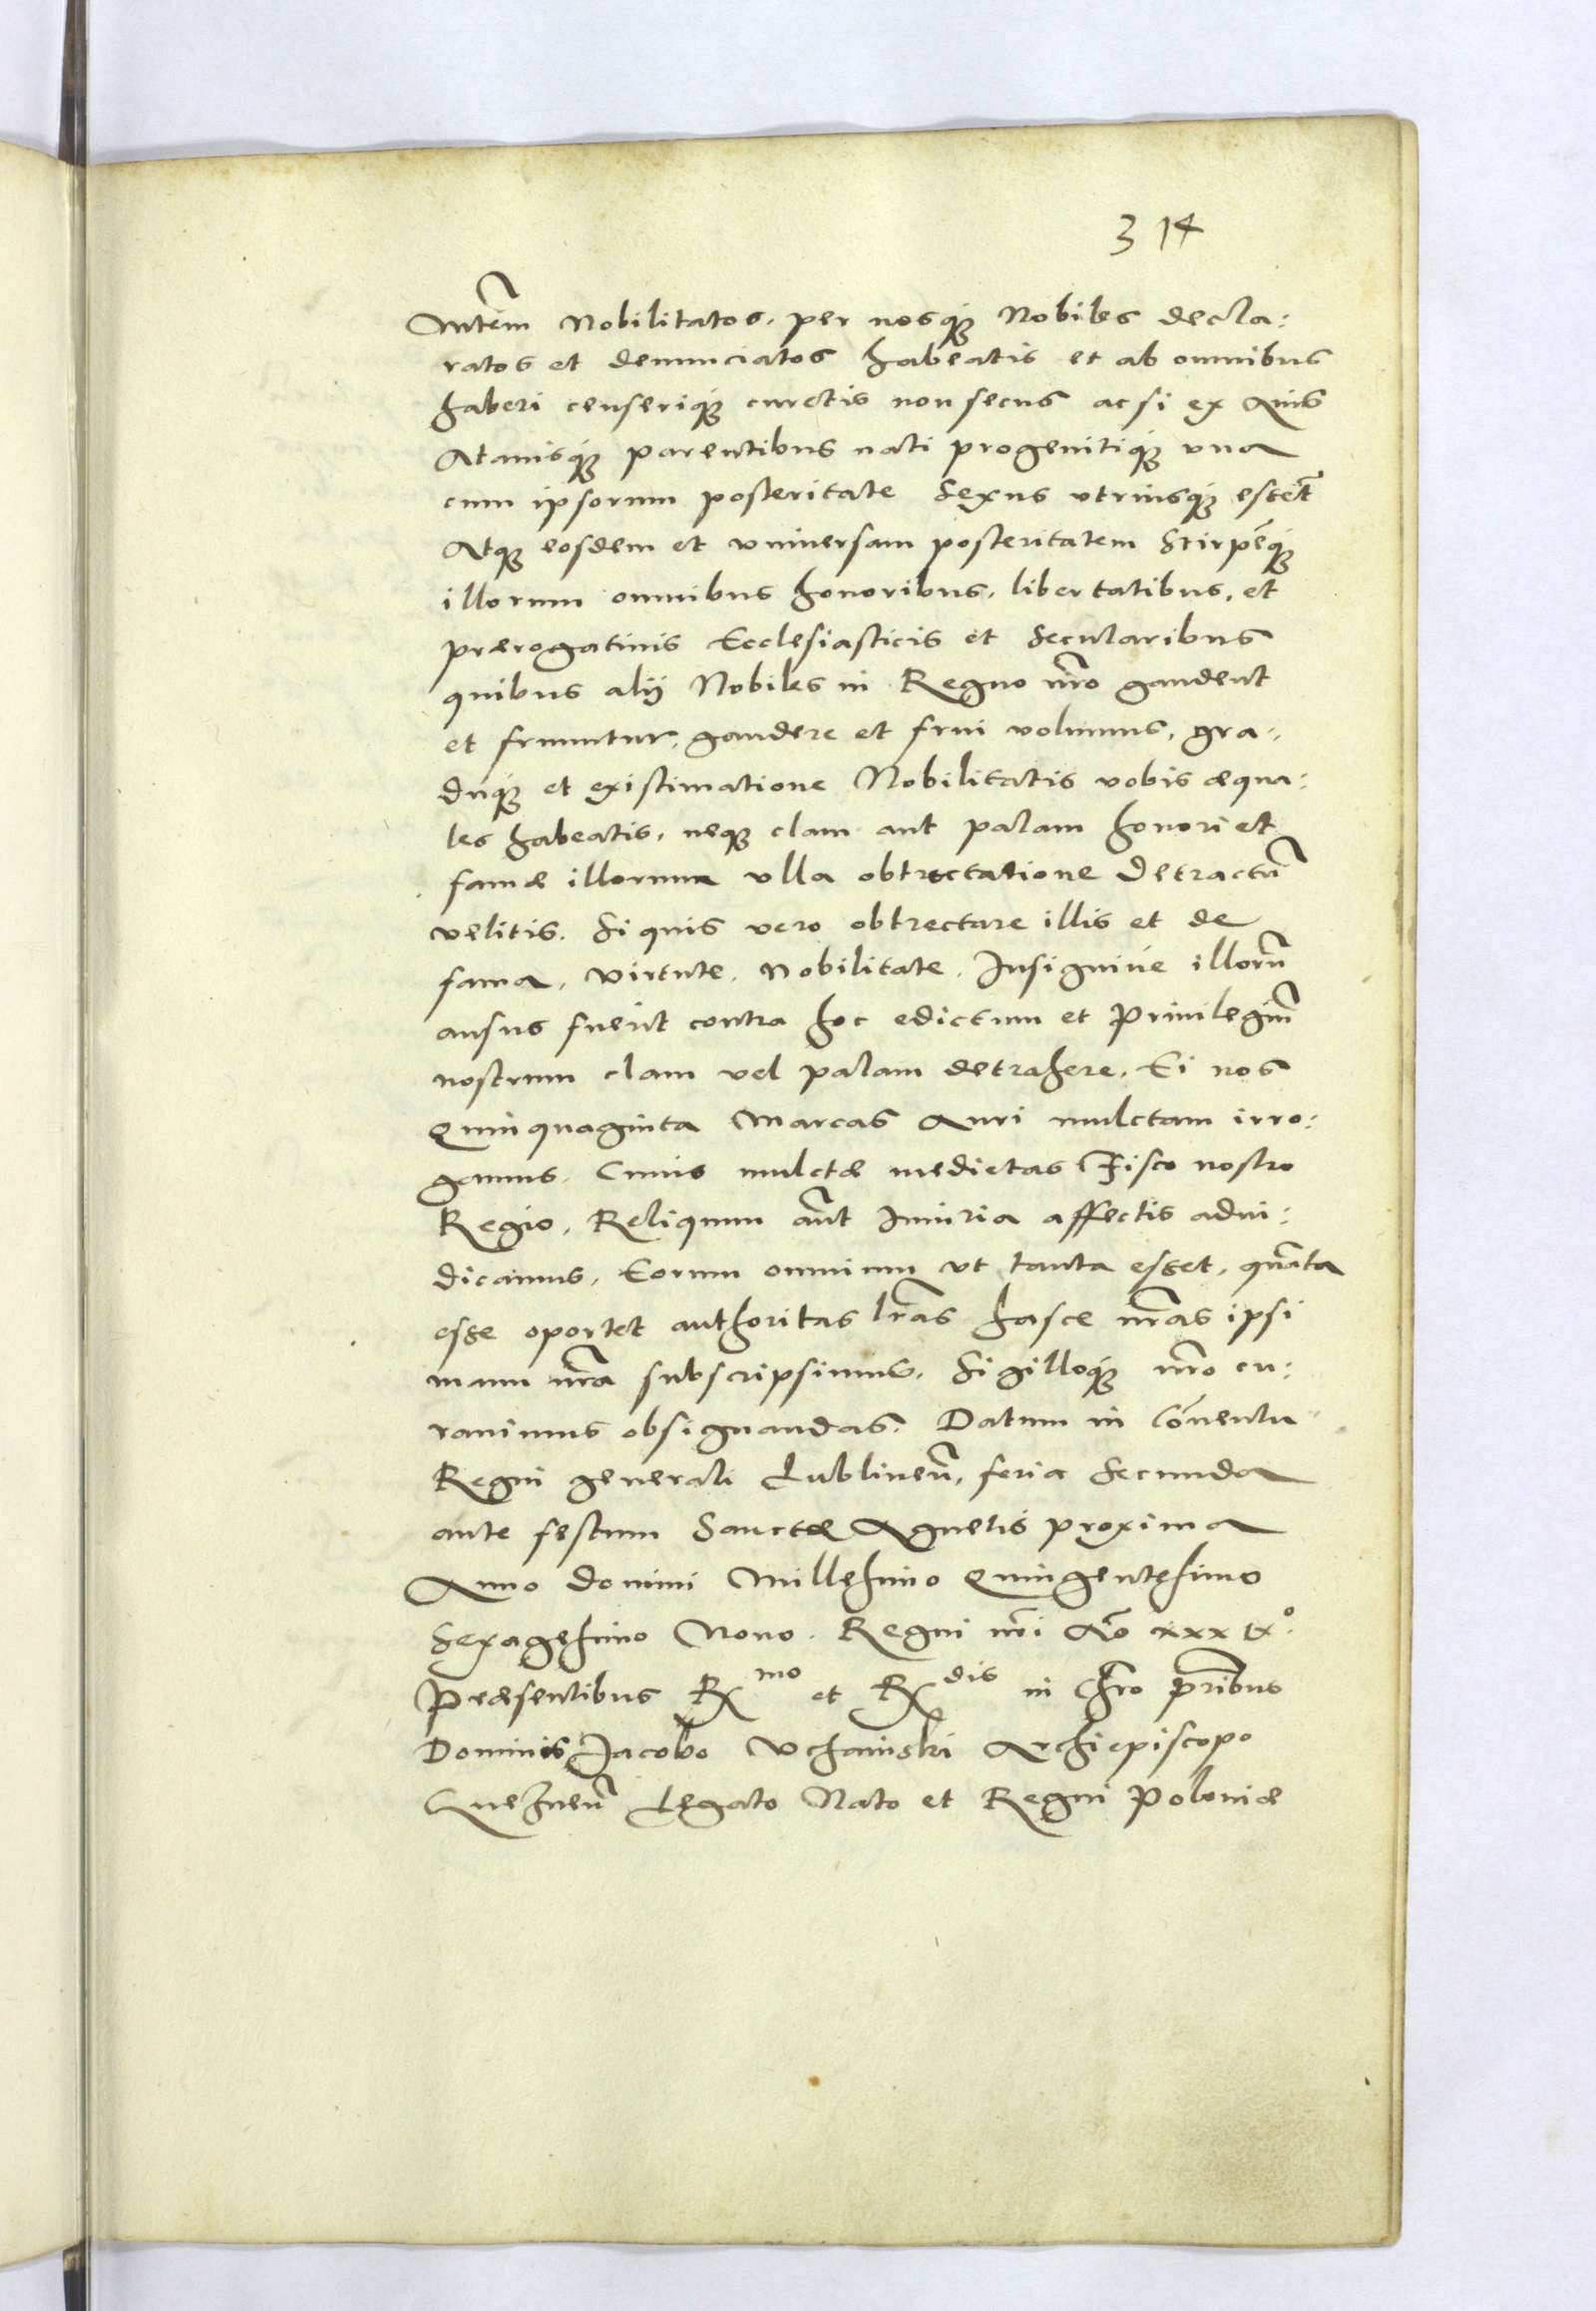 314
Autem Nobilitatos, per nosq́ꝫ Nobiles decla:
ratos et denunciatos habeatis et ab omnibus
haberi censeriq́ꝫ curetis non secus ac si ex Auis
Atauisq́ꝫ parentibus nati progenitiq́ꝫ vna
cum ipsorum posteritate Sexus vtriusq́ꝫ essēt
Atqꝫ eosdem et vniuersam posteritatem Stirpēqꝫ
illorum omnibus honoribus, libertatibus, et
prærogatiuis Ecclesiasticis et Secularibus
quibus alij Nobiles in Regno nr̄o gaudent
et fruuntur, gaudere et frui volumus, gra-
duq́ꝫ et existimatione Nobilitatis vobis æqua:
les habeatis, neqꝫ clam aut palam honori et
famæ illorum vlla obtrectatione detractū
velitis. Si quis vero obtrectare illis et de
fama, virtute, Nobilitate, Insigniúe illorū
ansus fuerit contra hoc edictum et Priuilegiū
nostrum clam vel palam detrahere, Ei nos
Quinquaginta Marcas Auri mulctam irro:
gamus, Cuius mulctæ medietas Fisco nostro
Regio, Reliquum aūt Iniuria affectis adiu:
dicamus, Eorum omnium vt tanta esset, quāta
esse oportet authoritas lr̄as hasce nr̄as ipsi
manu nr̄a subscripsimus, Sigilloq́ꝫ nr̄o cu:
rauimus obsignandas. Datum in Cōuentu
Regni generali Lublineñ, feria Secunda
ante festum Sanctæ Agnetis proxima
Anno domini Millesimo Quingentesimo
Sexagesimo Nono. Regni nr̄i Aō xxxix°.
Præsentibus R^mo et R^dis in Chr̄o pr̄ibus
Dominis Jacobo Vchanski Archiepiscopo
Gnezneñ Legato Nato et Regni Poloniæ